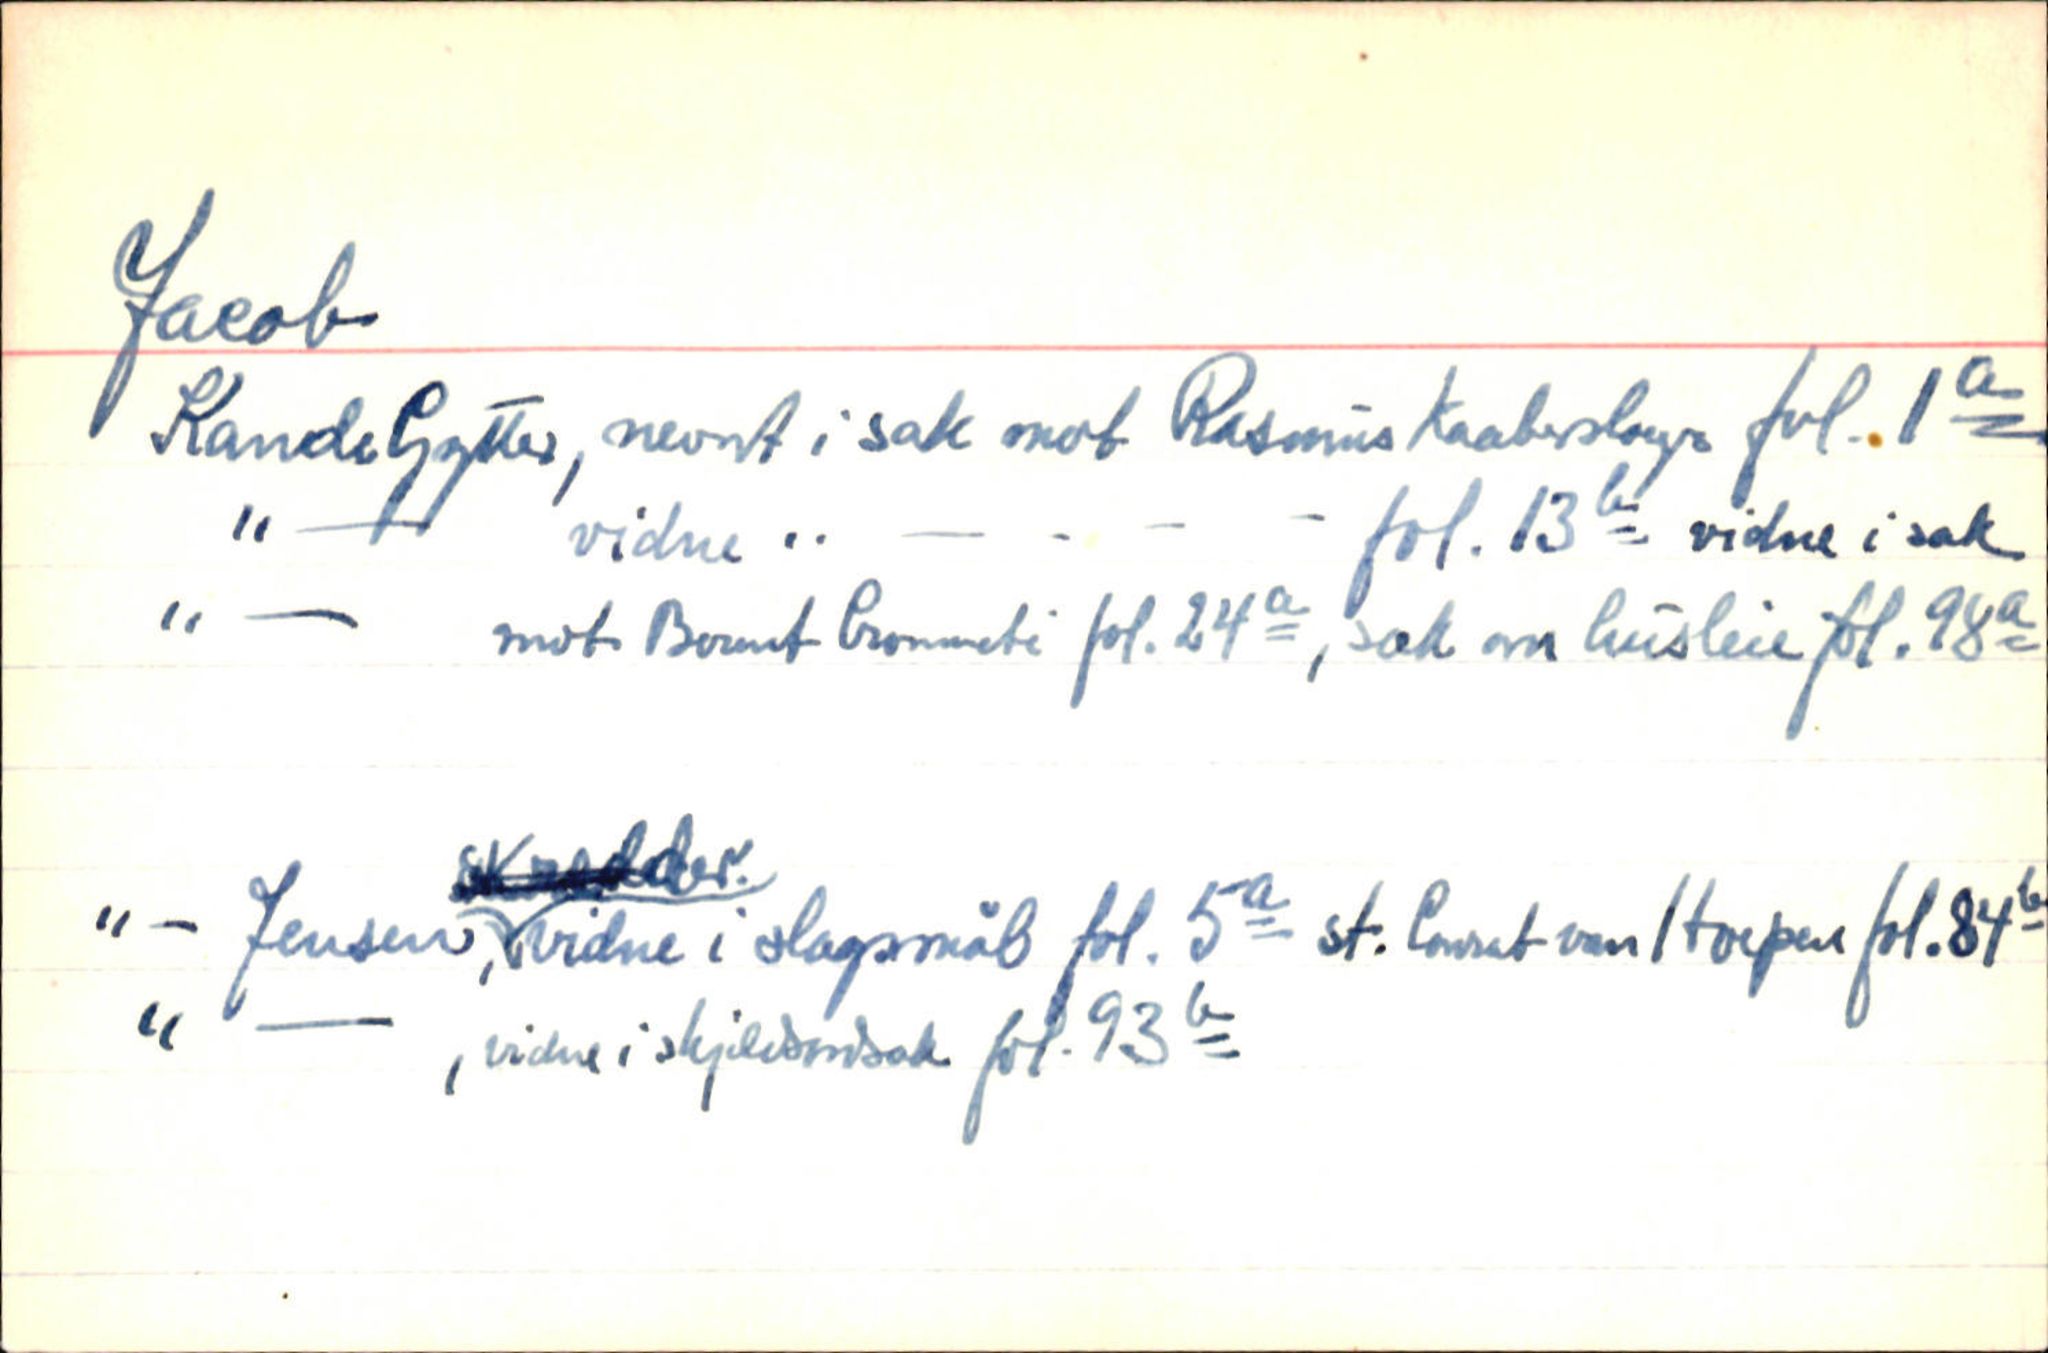 Jacob
Kande Gytter, nevnt i sak mot Rasmus Kaaberslager fol. 1a
" — vidne " — - - - fol. 13b vidne i sak
" — mot Bernt Crommeti fol. 24a, sak om husleie fol. 98a
skredder.
" - Jensen, vidne i slagsmål fol. 5a st. Conrat van Itoepen fol. 84b
" — , vidne i skjeldsordsak fol. 93b